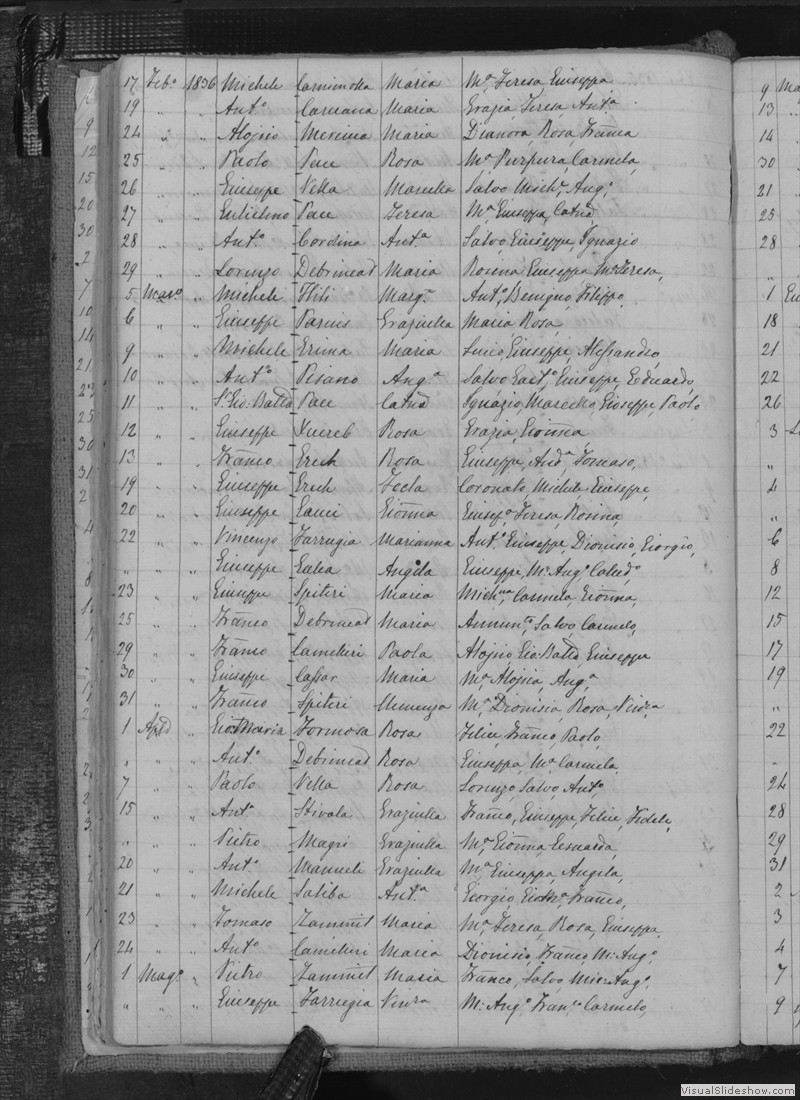 17 Feb° 1836 Michele Camenzuli Maria Mª Teresa Giuseppa
19 " " Ant° Caruana Maria Grazia, Teresa, Antª
24 " " Aloisio Mercieca Maria Dianora, Rosa, Franca
25 " " Paolo Pace Rosa Mª Purpura, Carmela,
26 " " Giuseppe Vella Marcella Salvo Mich, Ang°,
27 " " Guglielmo Pace Teresa Mª Giuseppa, Catna
28 " " Ant° Cordina Antª Salvo, Giuseppe, Ignazio
29 " " Lorenzo Debrincat Maria Rosina Giuseppa Mª Teresa,
5 Marzo " Michele Hili Margª Ant°, Benigno, Filippo,
6 " " Giuseppe Parnis Graziulla Maria Rosa,
9 " " Michele Grima Maria Giuseppe, Alessandro,
10 " " Ant° Pisano Angª Salvo Gaet° Giuseppe, Eduardo,
11 " " Gio: Batta Pace Catna Ignazio, Marcello, Giuseppe, Paolo
12 " " Giuseppe Xuereb Rosa Grazia, Gionna,
13 " " Franco Grech Rosa Giuseppe, Andª, Tomaso,
19 " " Giuseppe Grech Tecla Coronato, Michele, Giuseppe,
20 " " Giuseppe Gauci Gionna Giusepª Teresa, Rosina,
22 " " Vincenzo Farrugia Marianna Ant°, Giuseppe, Dionisio, Giorgio,
" " " Giuseppe Galea Angela Giuseppe, Mª Angª Catna
23 " " Giuseppe Spiteri Maria Carmela, Gionna,
25 " " Franco Debrincat Maria Annunta, Salvo, Carmelo,
29 " " Franco Camilleri Paola Aloisio Gio: Batta, Giuseppa
30 " " Giuseppe Cassar Maria Mª Aloisia, Angª
31 " " Franco Spiteri Clemenza Mª Dionisia, Rosa, Vinza
1 Aple " Gio:Maria Formosa Rosa Felice, Franco, Paolo,
" " " Ant° Debrincat Rosa Giuseppa, Mª Carmela,
7 " " Paolo Vella Rosa Lorenzo, Salvo, Ant°,
15 " " Ant° Stivala Graziulla Franco, Giuseppe, Felice, Fedele,
" " " Pietro Magri Graziulla Mª, Gionna,
20 " " Ant° Manueli Graziulla Mª Giuseppa, Angela,
21 " " Michele Saliba Antª Giorgio, Gio:Mª, Franco,
23 " " Tomaso Zammit Maria Mª, Teresa, Rosa, Giuseppa
24 " " Ant° Camilleri Maria Dionisio, Franco, M: Ang°,
1 Mag° " Pietro Zammit Maria Franco, Salvo Mic: Ang°,
" " " Giuseppe Farrugia Vinza M: Ang°, Carmelo,
9 Ma
13
14
30
21
25
28
"
1
18
21
22
26
3
"
4
"
6
8
12
15
17
19
"
22
"
24
28
29
31
2
3
4
7
9
VisualSlideshow.com